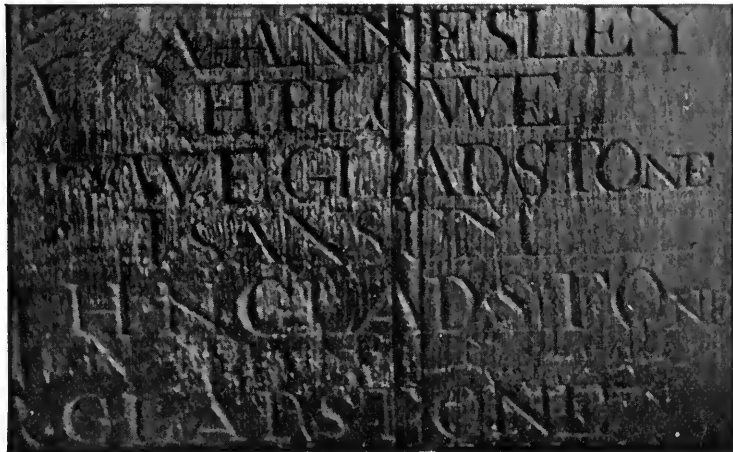 A ANNESLEY
H PLOWE
W.E.GLADSTONE
H N GLADSTONE
GLADSTONE